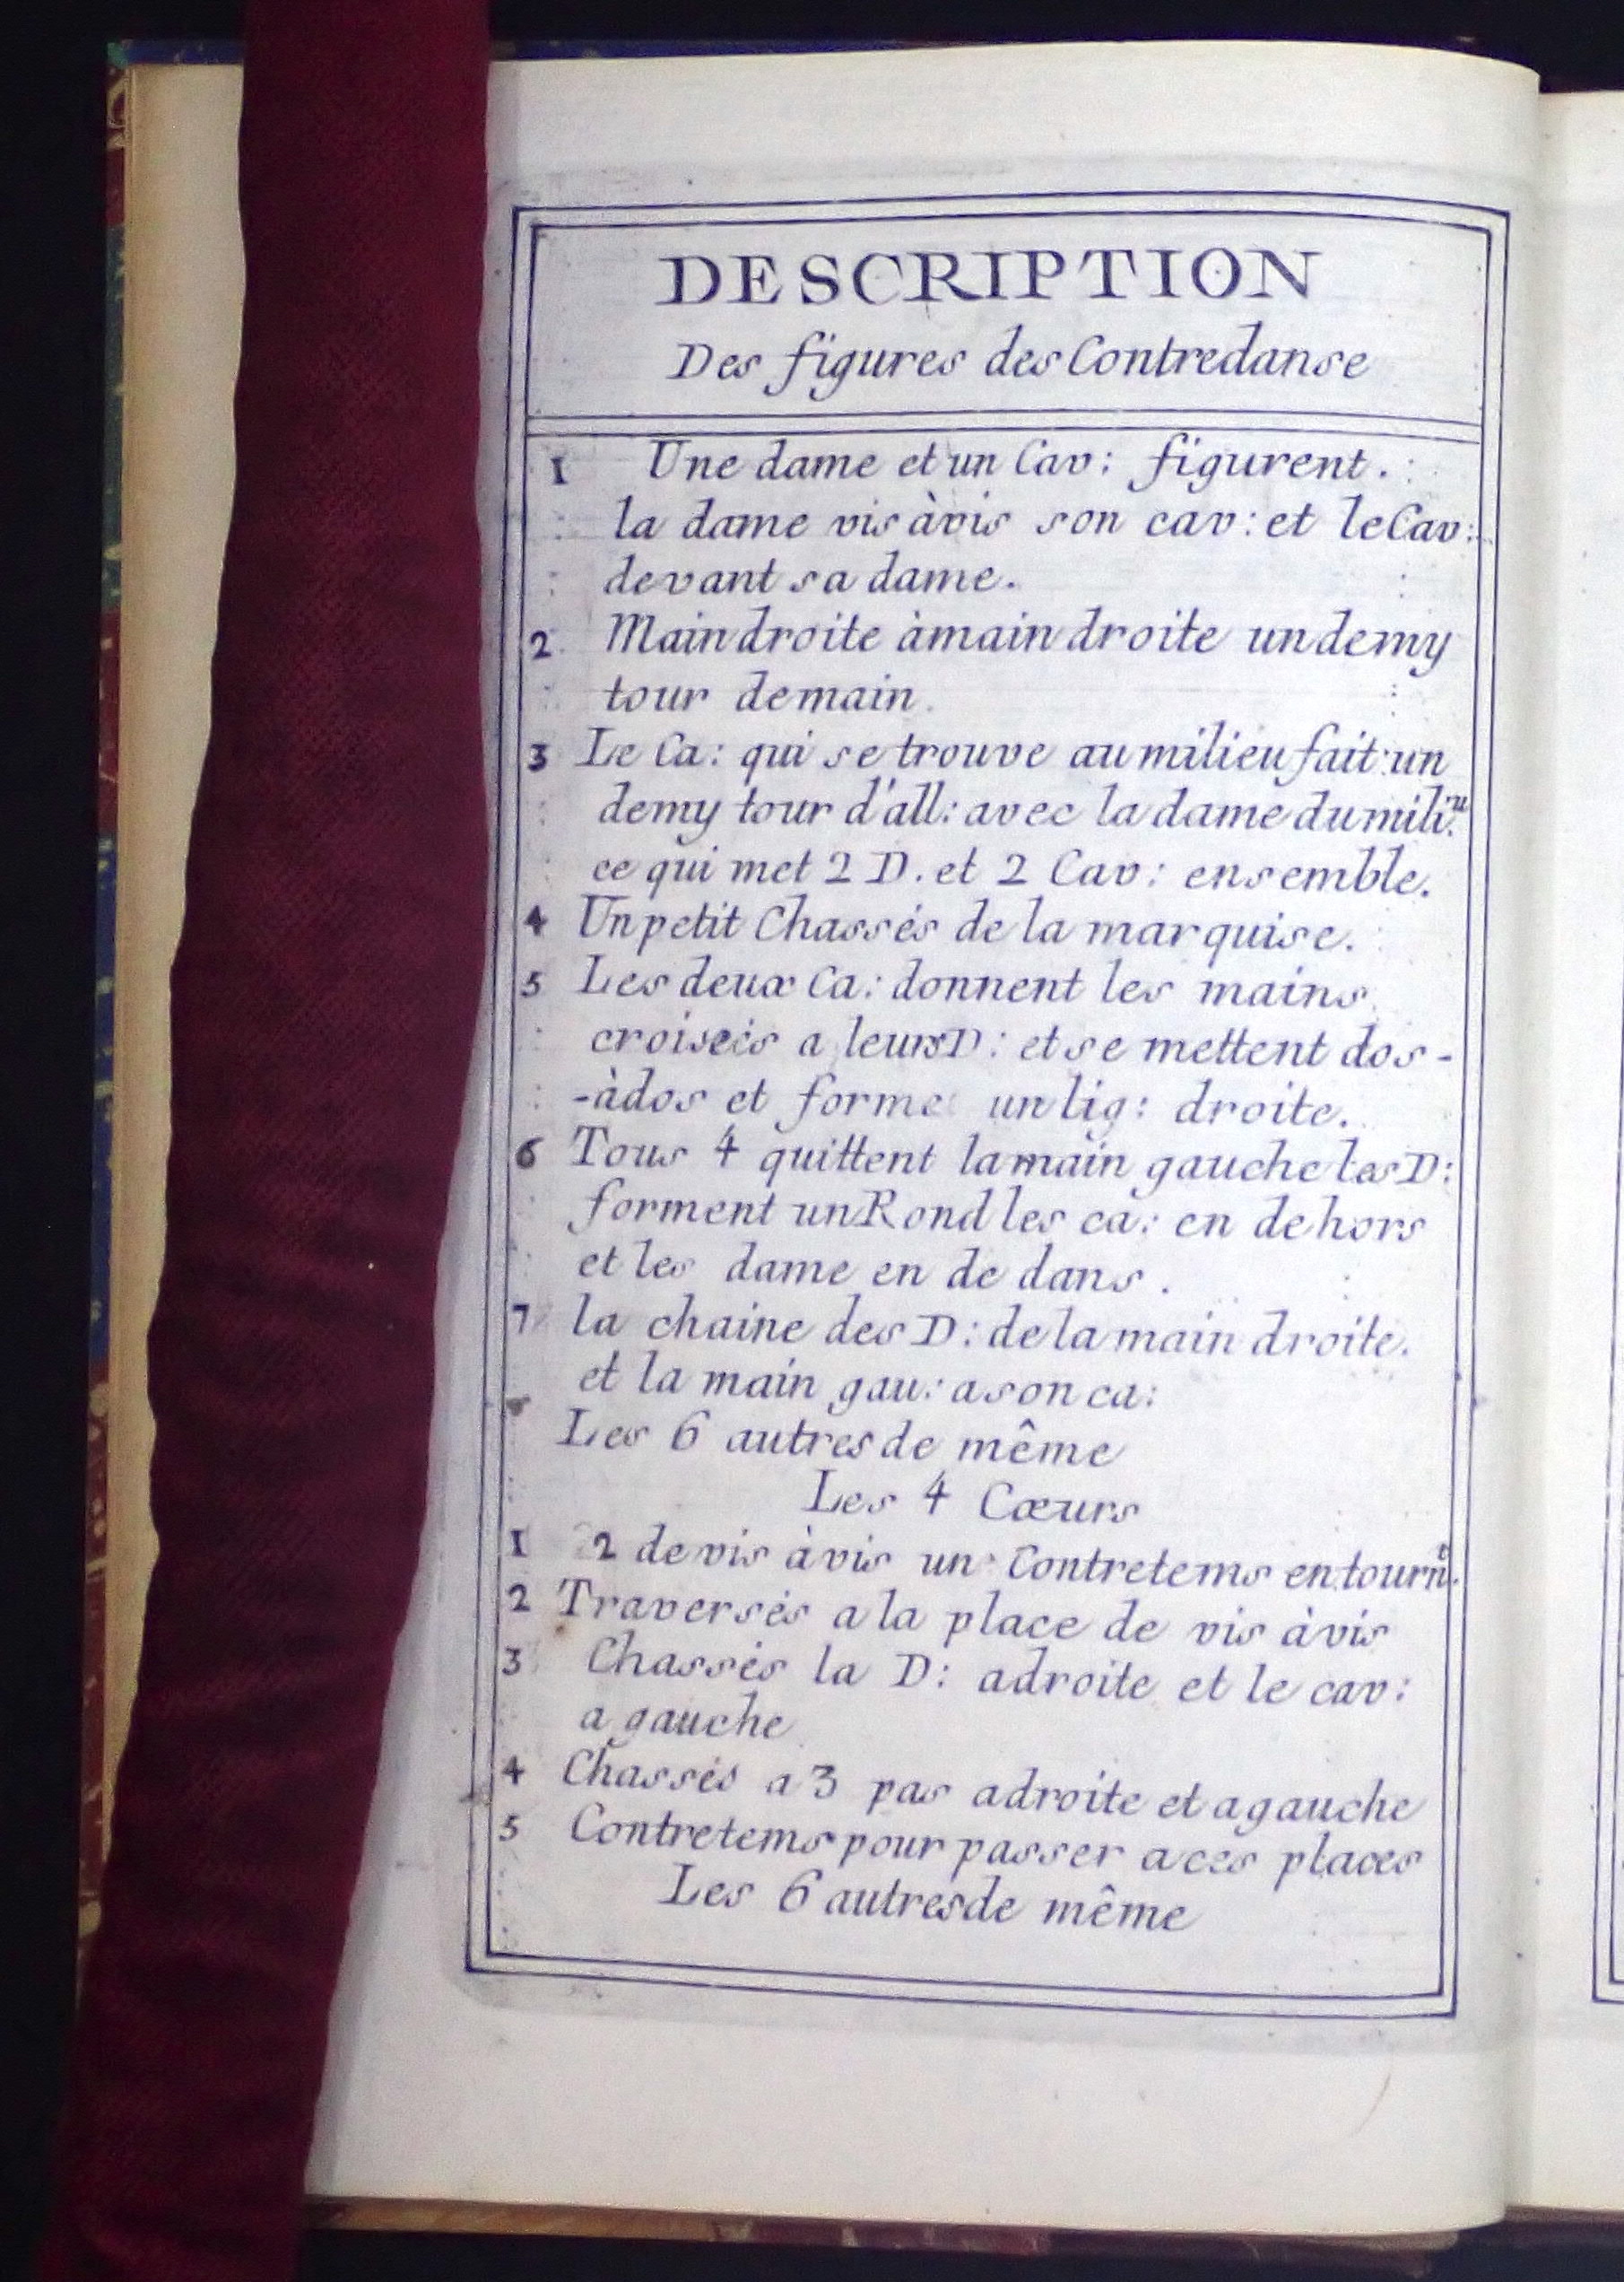 DESCRIPTION
Des figures des Contredanse
1 Une dame et un Cav: figurent.
la dame vis àvis son cav: et le Cav:
devant sa dame.
2 Main droite àmain droite un demy
tour demain.
3 Le Ca: qui se trouve au milieu fait un
demy tour d'all: avec la dame du mili.u
ce qui met 2 D. et 2 Cav: ensemble.
4 Un petit Chassés de la marquise.
5 Les deux Ca: donnent les mains
croiseés a leurs D: et se mettent dos-
-àdos et forme un lig: droite.
6 Tous 4 quittent la main gauche les D:
forment un Rond les ca: en dehors
et les dame en de dans.
7 la chaine des D: de la main droite.
et la main gau: a son ca:
Les 6 autres de même
Les 4 Cœurs
1 2 de vis àvis un Contretems en tourn.t
2 Traversés a la place de vis àvis
3 Chassés la D: adroite et le cav:
a gauche
4 Chassés a 3 pas adroite et agauche
5 Contretems pour passer a ces places
Les 6 autres de même